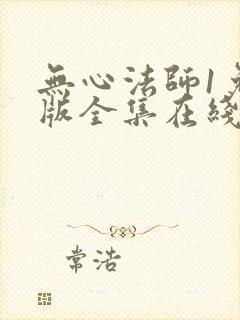 無心法師1免
版全集在綫
常浩